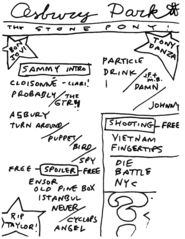 Asbury Park
THE STONE PONY
BON JOVI
TONY DANZA
SAMMY INTRO
CLOISONNE - CLARI!
PROBABLY / THE GTR!
ASBURY
TURN AROUND /
PUPPET /
BIRD /
SPY
FREE - SPOILER - FREE
ENSOR
OLD PINE BOX
ISTANBUL
NEVER /
CYCLOPS
ANGEL
RIP TAYLOR!
PARTICLE
DRINK /
I / DAMN
JOHNNY
SHOOTING - FREE
VIETNAM
FINGERTIPS
DIE
BATTLE
NYC